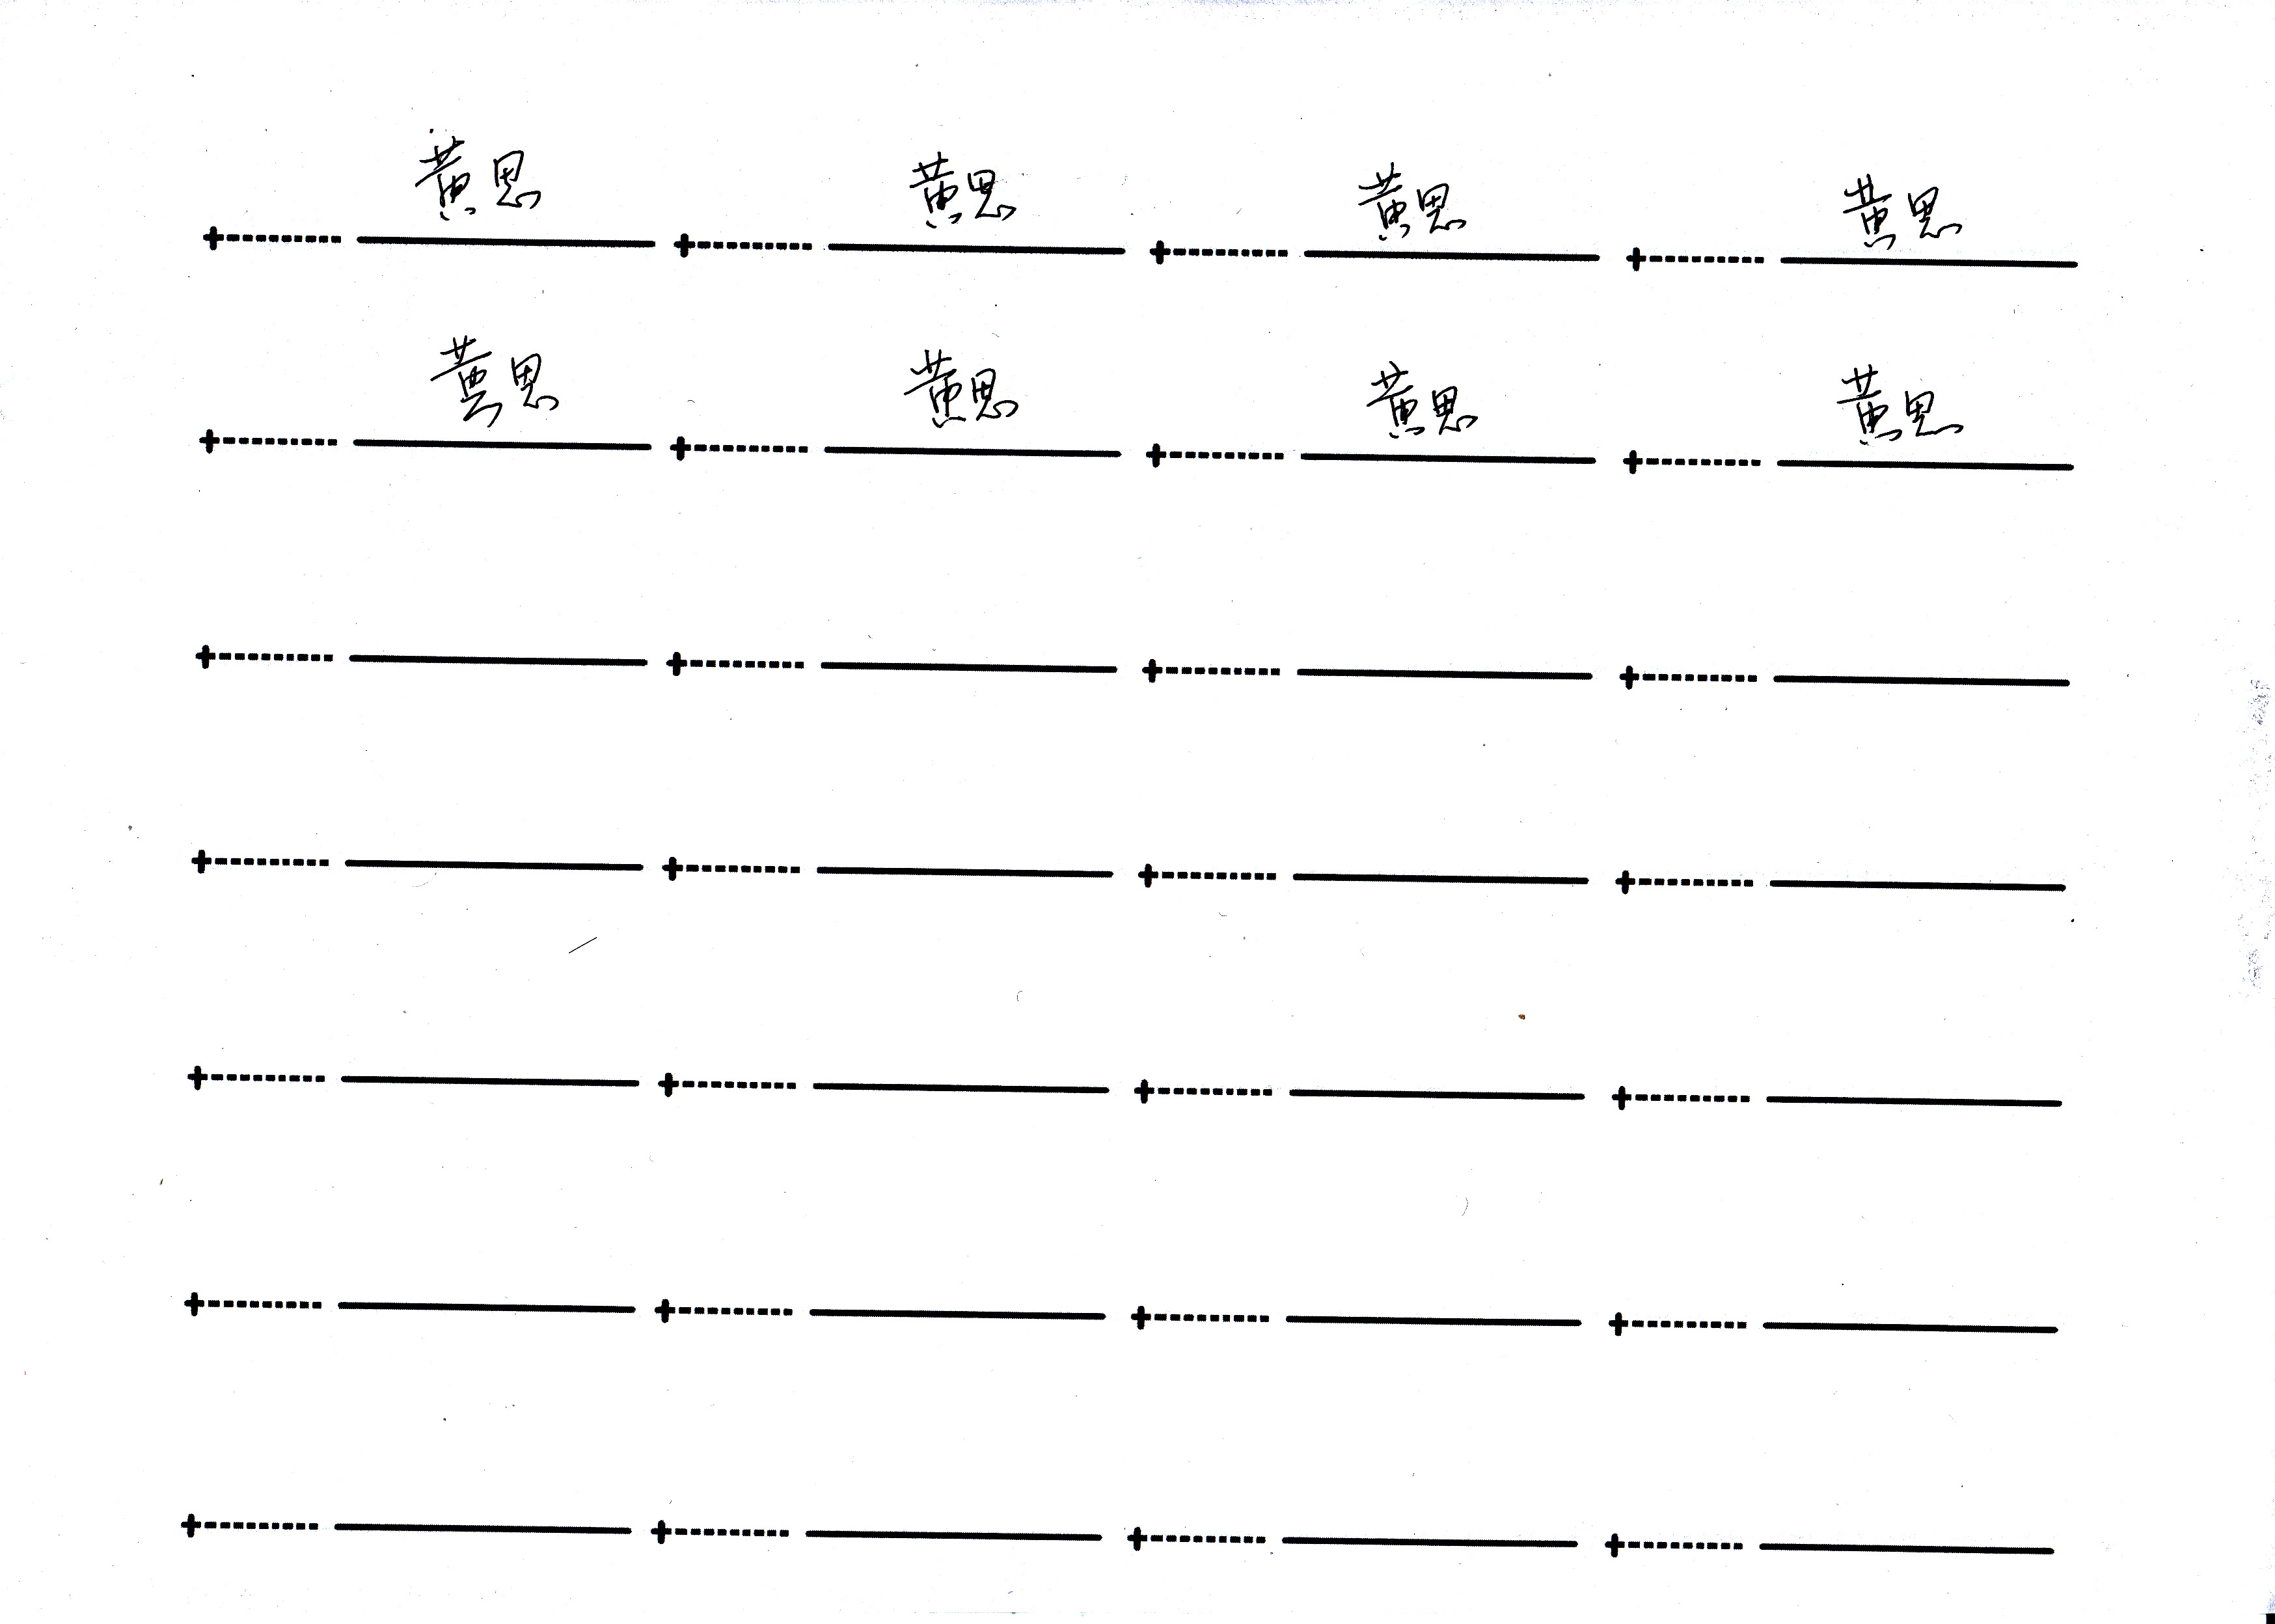 黄思 黄思 黄思 黄思
黄思 黄思 黄思 黄思